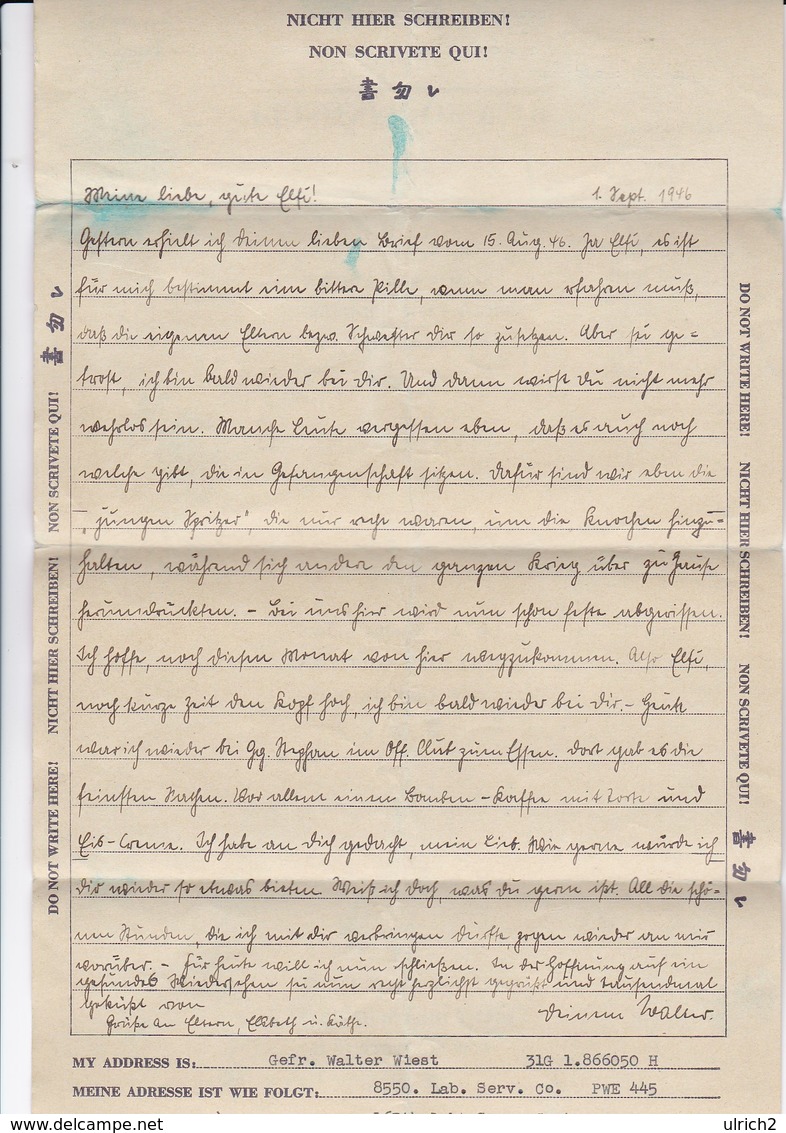 NICHT HIER SCHREIBEN!
NON SCRIVETE QUI!
書 勿 レ
Meine liebe, gute Elfi! 1. Sept. 1946
Gestern erhielt ich Deinen lieben Brief vom 15. Aug. 46. Ja Elfi, es ist
für mich bestimmt eine bittere Pille, wenn man erfahren muß,
daß die eigenen Eltern bezw. Schwester Dir so zusetzen. Aber sei ge=
trost, ich bin bald wieder bei Dir. Und dann wirst Du nicht mehr
wehrlos sein. Manche Leute vergessen eben, daß es auch noch
welche gibt, die in Gefangenschaft sitzen. Dafür sind wir eben die
"jungen Spritzer", die nur recht waren, um die Knochen hinzu=
halten, während sich andere den ganzen Krieg über zu Hause
herumdrückten. - Bei uns hier wird nun schon feste abgerissen.
Ich hoffe, noch diesen Monat von hier wegzukommen. Also Elfi,
noch kurze Zeit den Kopf hoch, ich bin bald wieder bei Dir. - Heute
war ich wieder bei Gg. Stephan im Off. Club zum Essen. Dort gab es die
feinsten Sachen. Vor allem einen Bomben-Kaffee mit Torte und
Eis-Creme. Ich habe an Dich gedacht, mein Lieb. Wie gerne würde ich
Dir wieder so etwas bieten. Weiß ich doch, was Du gern ißt. All die schö=
nen Stunden, die ich mit Dir verbringen durfte zogen wieder an mir
vorüber. - Für heute will ich nun schließen. In der Hoffnung auf ein
gesundes Wiedersehen sei nun recht herzlichst gegrüßt und tausendmal
geküßt von
Deinem Walter.
Grüße an Eltern, Elsbeth u. Käthe.
DO NOT WRITE HERE! NICHT HIER SCHREIBEN! NON SCRIVETE QUI! 書 勿 レ
DO NOT WRITE HERE! NICHT HIER SCHREIBEN! NON SCRIVETE QUI! 書 勿 レ
MY ADDRESS IS: Gefr. Walter Wiest 31G 1.866050 H
MEINE ADRESSE IST WIE FOLGT: 8550. Lab. Serv. Co. PWE 445
ulrich2